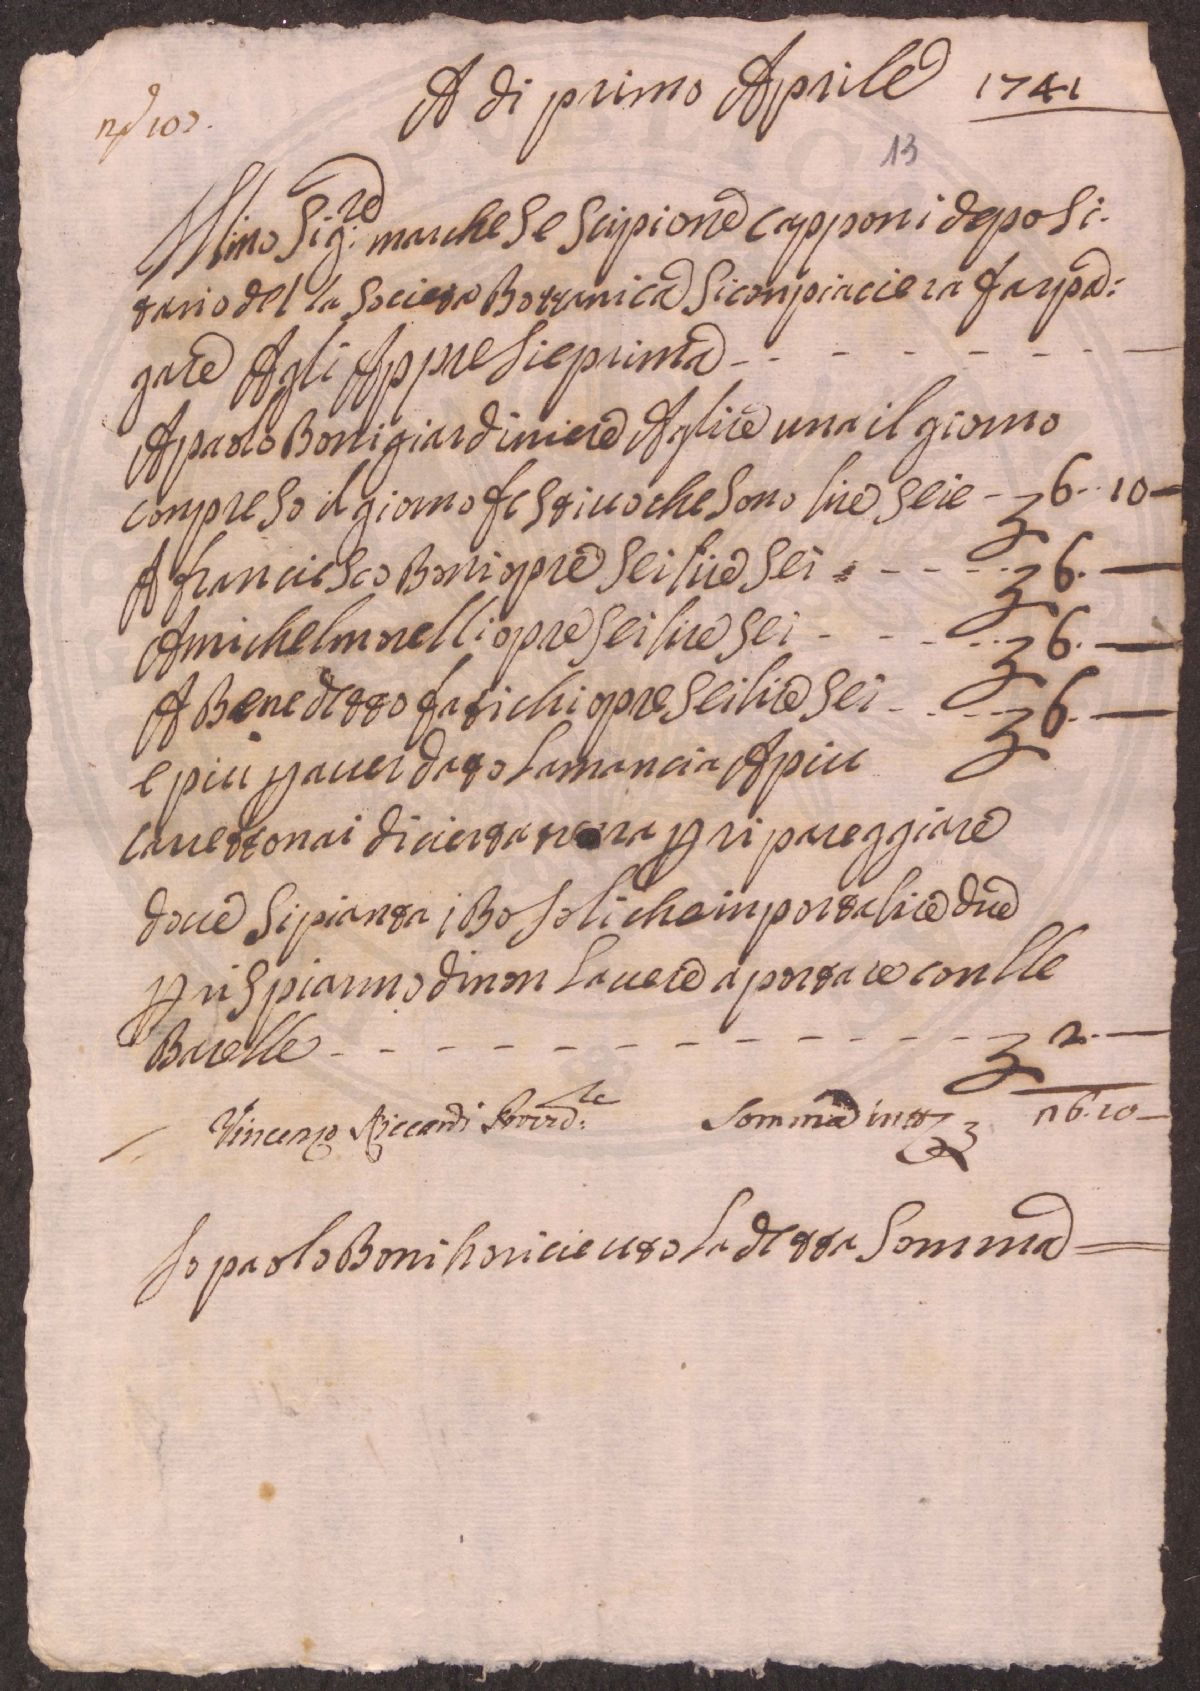 A di primo Aprile 1741
13
Sig:re marchese Scipione Capponi deposi-
tario del la Societa Bottanica Siconpiaciera far pa:
gare Agli Appresieprima
Apaolo Boni giardiniere A lire una il giorno
conpreso il giorno festiuo che sono lire seie 6. 10
A franciesco Boni opre sei lire sei 6.
Amichel morelli opre sei lire sei 6.
A Benedetto fatichi opre sei lire sei 6.
e piu p auer dato la mancia A piu
carrettonai di cierta terra p ri pareggiare
doue si pianta i Bosoli che inporta lire due
p rispiarmo di non l auere a portare con lle
Barelle 2.
Vincenzo Riccardi Somma in tt
Io paolo Boni ho riceiuto la detta Somma